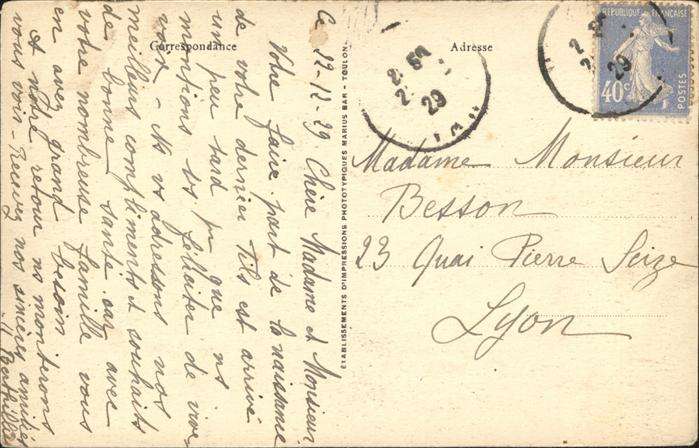 Correspondance
Adresse
Ce 22-12-29 Chère Madame et Monsieur
Votre faire part de la naissance
de votre dernier fils est arrivé
un peu tard pr que ns
montions vs féliciter de vive
voix - Ns vs adressons nos
meilleurs compliments & souhaits
de bonne santé car avec
votre nombreuse famille vous
en avez grand besoin
A notre retour ns monterons
vous voir - Recevez nos sincères amitiés
ÉTABLISSEMENTS D'IMPRESSIONS PHOTOTYPIQUES MARIUS BAR - TOULON
RÉPUBLIQUE FRANÇAISE
40c
POSTES
29
29
Madame Monsieur
Besson
23 Quai Pierre Seize
Lyon